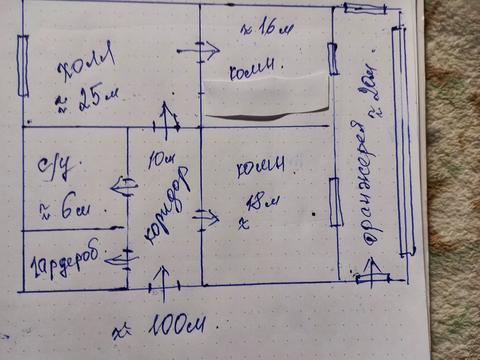 холл
≈ 25м
≈ 16м
комн.
оранжерея
≈ 20м.
с/у.
≈ 6м.
10м
коридор
комн.
18м
≈
гардероб
≈ 100м.